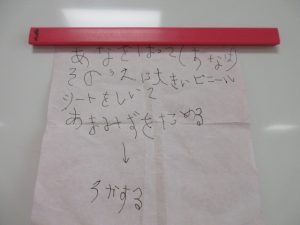 あなをほって(あなは)
そのうえに大きいビニール
シートをしいて
あまみずをためる
↓
ろかする